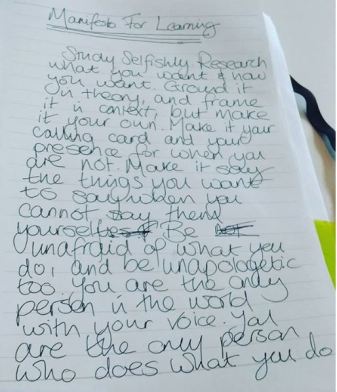 Manifesto For Learning
Study Selfishly Research
what you want & how
you want. Ground it
in theory, and frame
it in context, but make
it your own. Make it your
calling card and your
presence for when you
are not. Make it say
the things you want
to say when you
cannot say them
yourself Be
unafraid of what you
do, and be unapologetic
too you are the only
person in the world
with your voice. You
are the only person
who does what you do